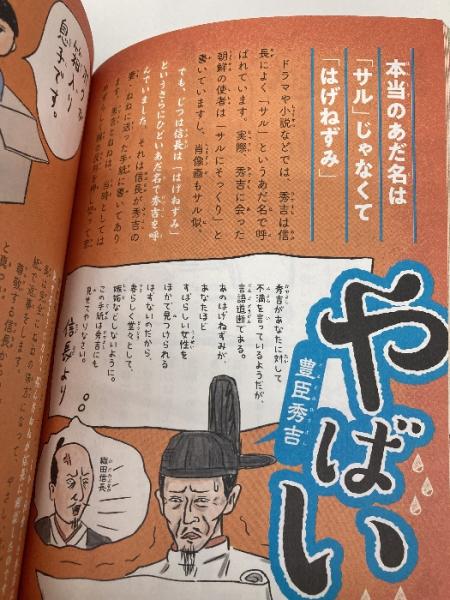 本当のあだ名は
「サル」じゃなくて
「はげねずみ」
ドラマや小説などでは、秀吉は信
長によく「サル」というあだ名で呼
ばれています。実際、秀吉に会った
朝鮮の使者は「サルにそっくり」と
書いていますし、肖像画もサル似。
でも、じつは信長は「はげねずみ」
というさらにひどいあだ名で秀吉を呼
んでいました。それは信長が秀吉の
妻・ねねに送った手紙に書いてあり
ます。秀吉とねねは、当時としては
やばい
豊臣秀吉
秀吉があなたに対して
不満を言っているようだが、
言語道断である。
あのはげねずみが、
あなたほど
すばらしい女性を
ほかで見つけられる
はずないのだから、
奥らしく堂々として、
嫉妬などしないように。
この手紙は秀吉にも
見せてやりなさい。
信長より
織田信長
箱入り
息子です。
尊敬する信長から